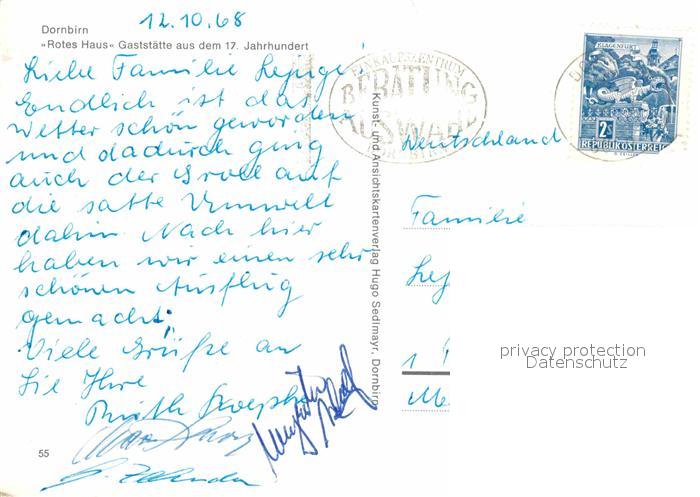 12.10.68
Dornbirn
»Rotes Haus« Gaststätte aus dem 17. Jahrhundert
Liebe Familie
Endlich ist das
Wetter schön geworden
und dadurch ging
auch der Groll auf
die satte Umwelt
dahin. Nach hier
haben wir einen sehr
schönen Ausflug
gemacht.
Viele Grüße an
Sie Ihre
Ruth
55
Kunst- und Ansichtskartenverlag Hugo Sedlmayr, Dornbirn
EINKAUFSZENTRUM
BERATUNG
AUSWAHL
KLAGENFURT
2 S
REPUBLIK ÖSTERREICH
Deutschland
Familie
privacy protection
Datenschutz